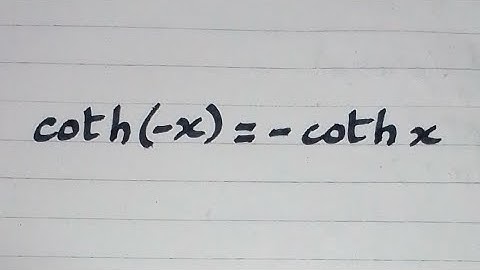 coth(-x) = - coth x